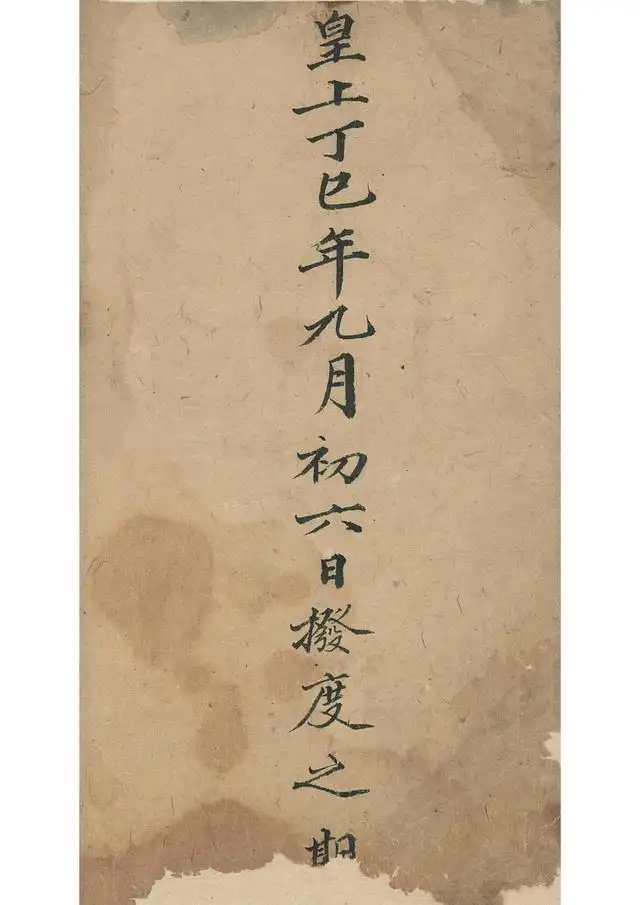 皇上丁巳年九月初六日撥度之期